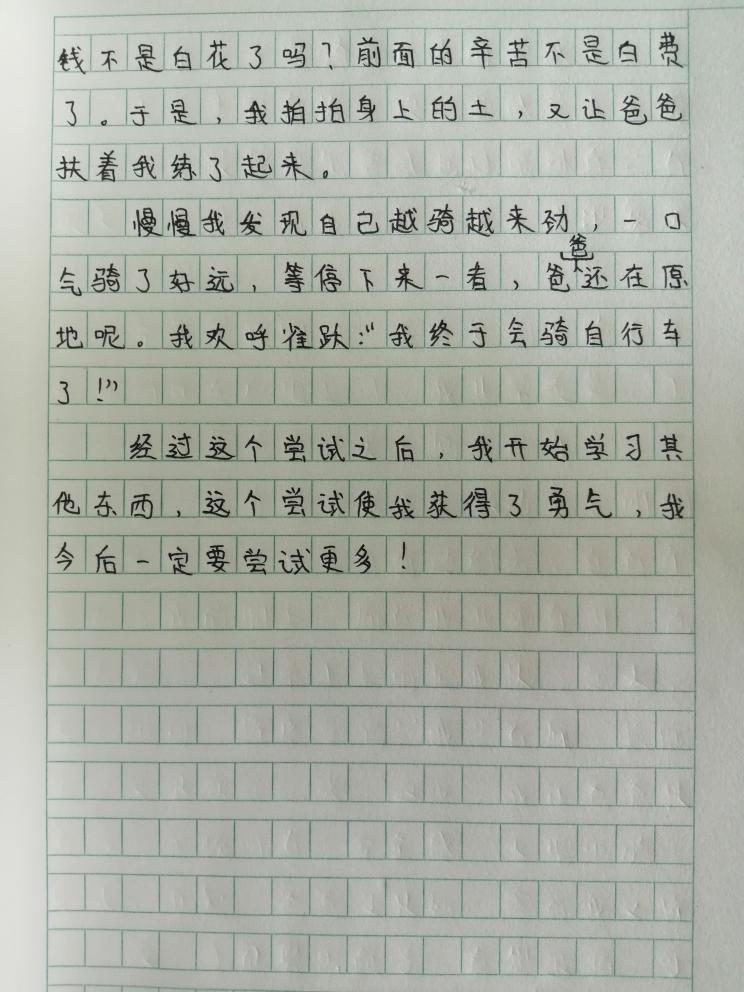 钱不是白花了吗？前面的辛苦不是白费
了。于是，我拍拍身上的土，又让爸爸
扶着我练了起来。
慢慢我发现自己越骑越来劲，一口
气骑了好远，等停下来一看，爸爸还在原
地呢。我欢呼雀跃：“我终于会骑自行车
了！”
经过这个尝试之后，我开始学习其
他东西，这个尝试使我获得了勇气，我
今后一定要尝试更多！